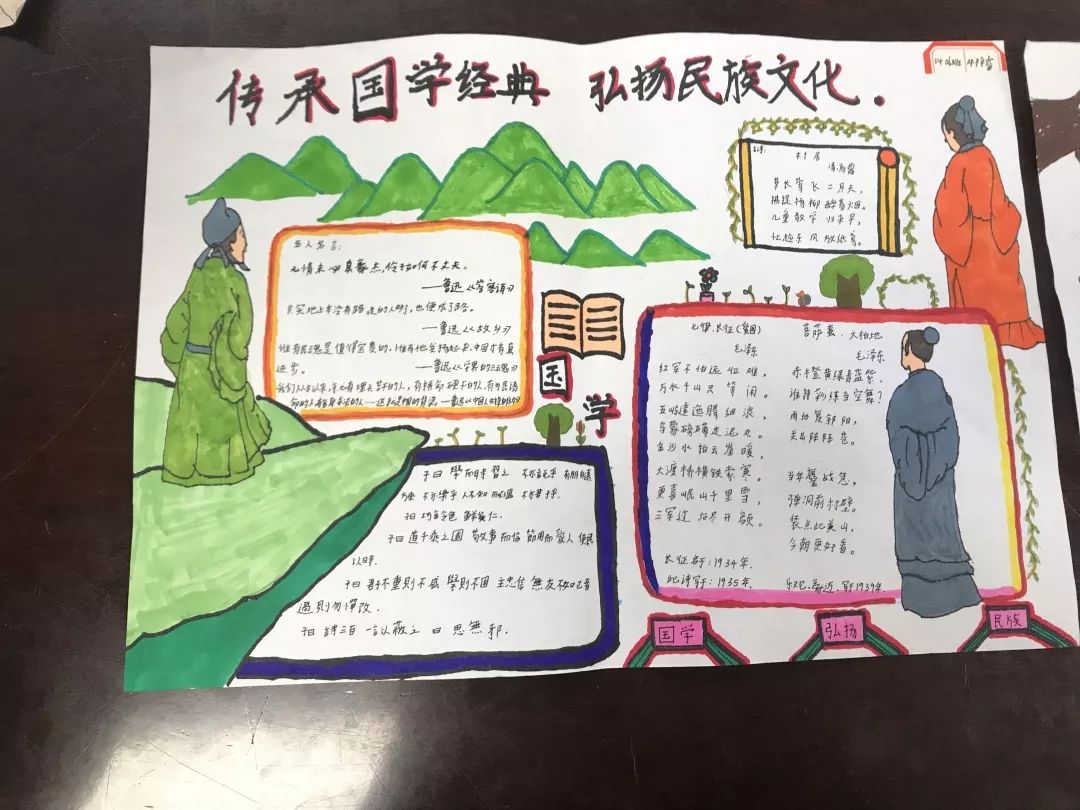 传承国学经典 弘扬民族文化.
村居
清 高鼎
草长莺飞二月天,
拂堤杨柳醉春烟。
儿童散学归来早,
忙趁东风放纸鸢。
名人名言:
无情未必真豪杰,怜子如何不丈夫。
——鲁迅《答客诮》
其实地上本没有路,走的人多了,也便成了路。
——鲁迅《故乡》
惟有民魂是值得宝贵的,惟有他发扬起来,中国才有真
进步。——鲁迅《学界的三魂》
我们从古以来,就有埋头苦干的人,有拼命硬干的人,有为民请
命的人,有舍身求法的人
国学
子曰 學而時習之 不亦說乎 有朋自遠
方來 不亦樂乎 人不知而不慍 不亦君子乎.
子曰 巧言令色 鮮矣仁.
子曰 道千乘之國 敬事而信 節用而愛人 使民
以時.
子曰 君子不重則不威 學則不固 主忠信 無友不如己者
過則勿憚改.
子曰 詩三百 一言以蔽之 曰 思無邪.
七律.长征
毛泽东
红军不怕远征难,
万水千山只等闲。
五岭逶迤腾细浪,
乌蒙磅礴走泥丸。
金沙水拍云崖暖,
大渡桥横铁索寒。
更喜岷山千里雪,
三军过后尽开颜。
长征写于:1934年.
此诗写于:1935年.
菩萨蛮.大柏地
毛泽东
赤橙黄绿青蓝紫,
谁持彩练当空舞?
雨后复斜阳,
关山阵阵苍。
当年鏖战急,
弹洞前村壁。
装点此关山,
今朝更好看。
国学
弘扬
民族